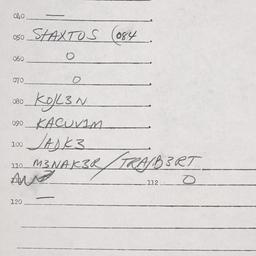 040 —
050 SHAXTOS (084
060 O
070 O
080 KOJL3N
090 KACUV1M
100 JADK3
110 M3NAK3R/TRAJB3RT
112 O
120 —